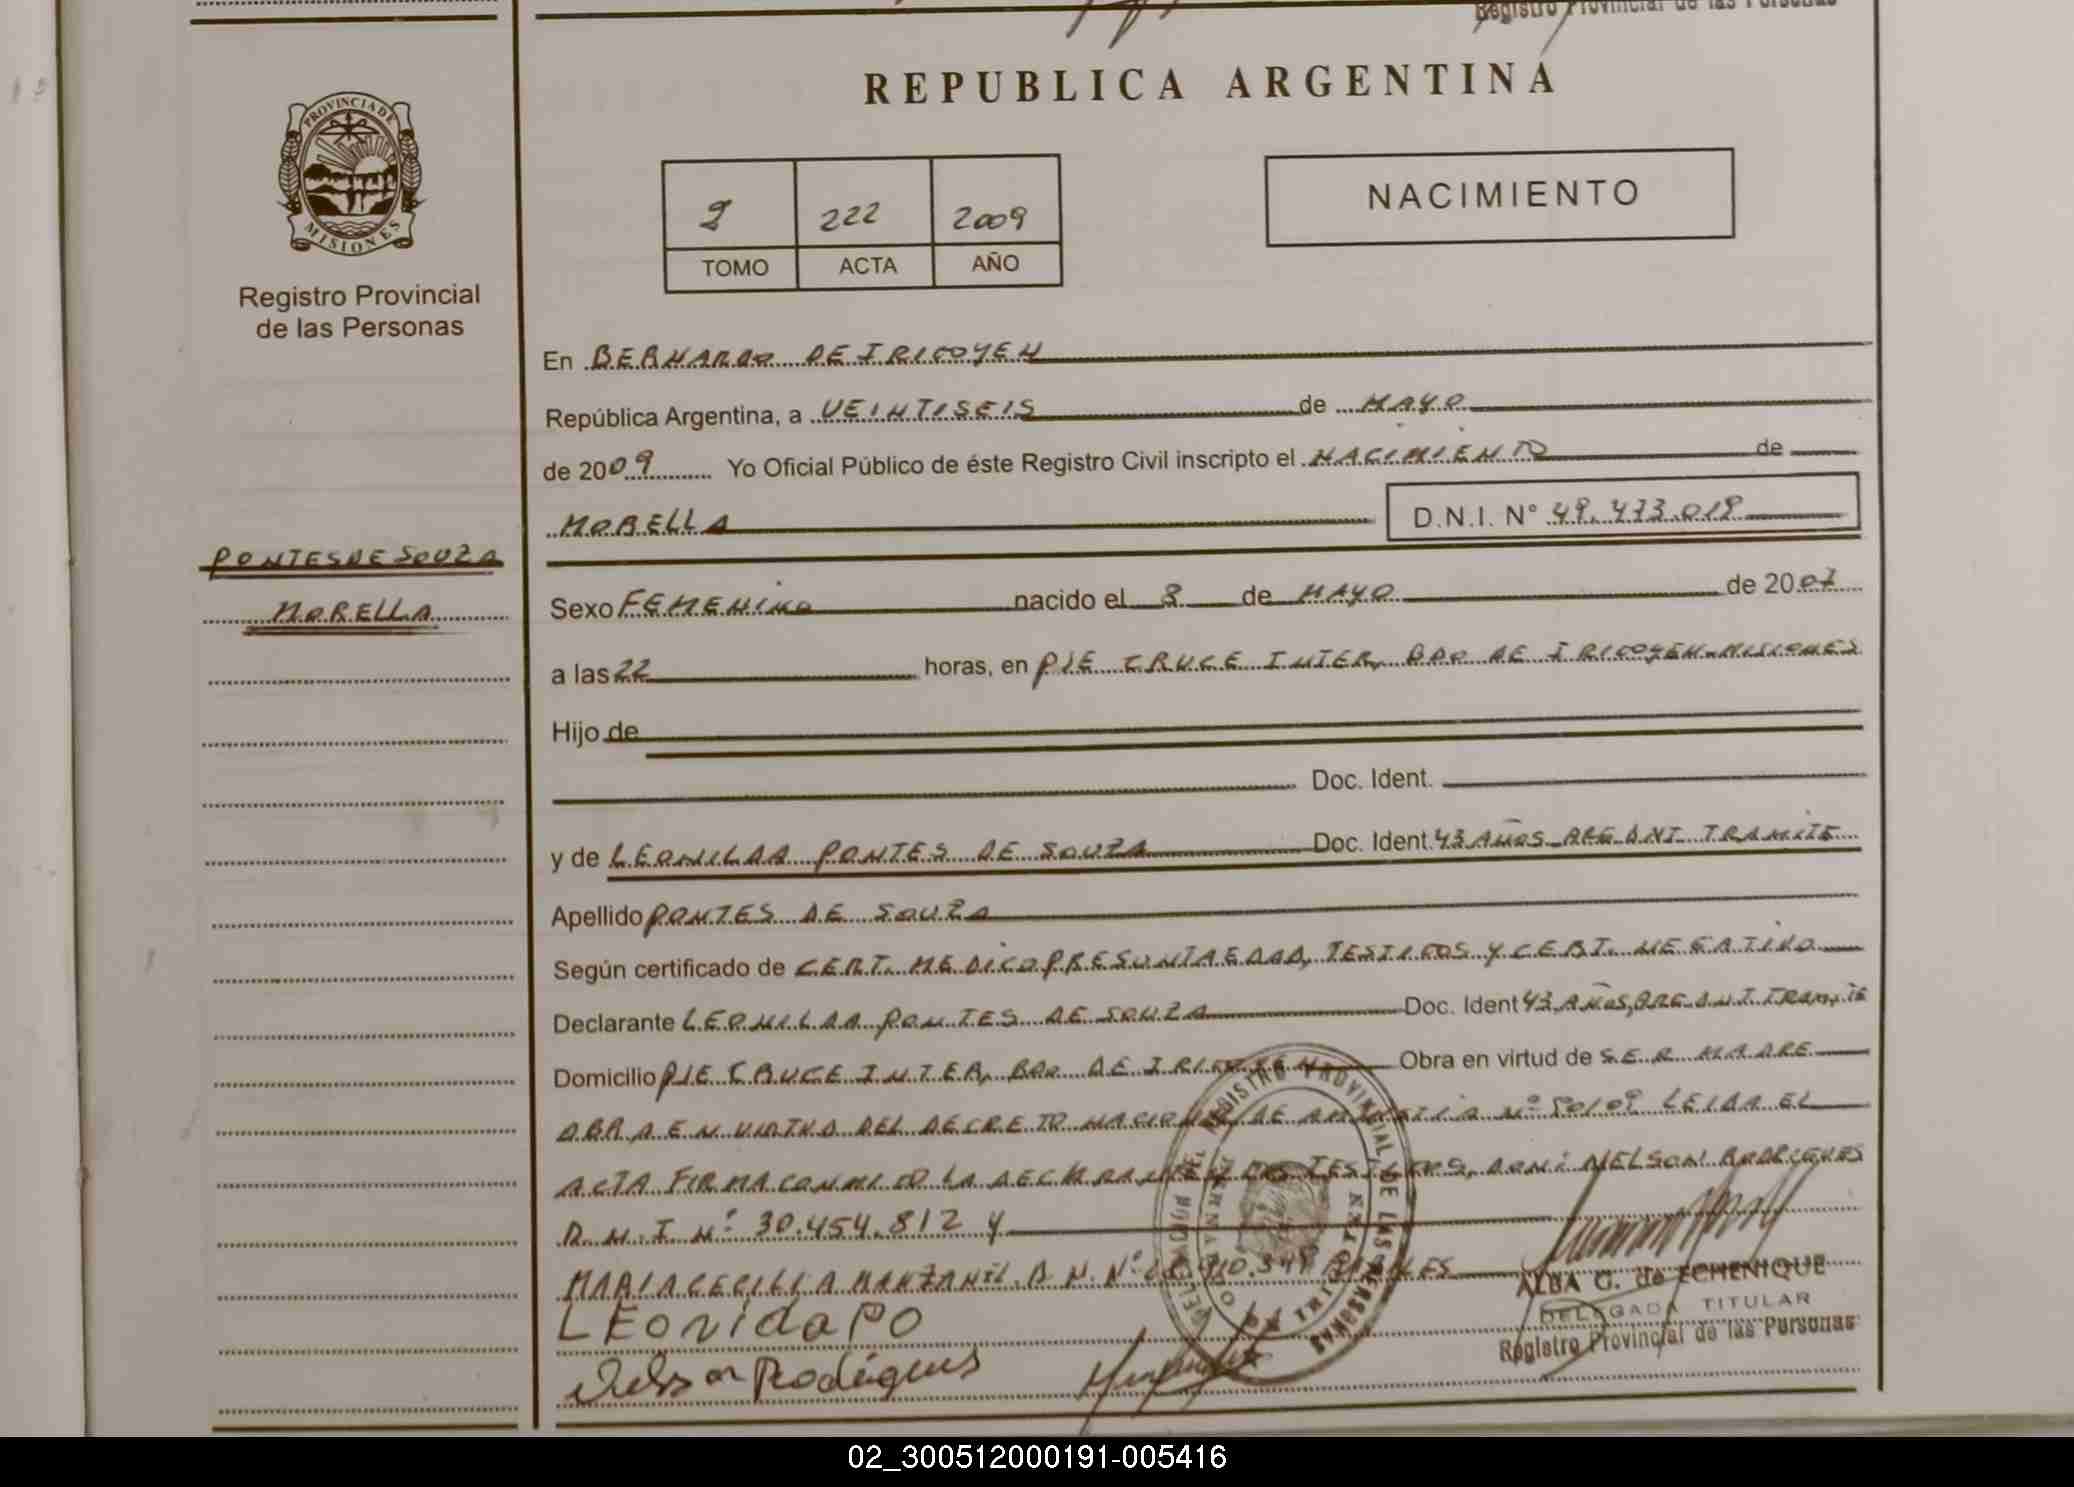 Registro Provincial de las Personas
REPUBLICA ARGENTINA
PROVINCIA DE
MISIONES
Registro Provincial
de las Personas
2 222 2009
TOMO ACTA AÑO
NACIMIENTO
En BERNARDO DE IRIGOYEN
República Argentina, a VEINTISEIS de MAYO
de 2009 Yo Oficial Público de éste Registro Civil inscripto el NACIMIENTO de
MORELLA D.N.I. Nº 49.473.019
PONTES DE SOUZA
MORELLA
Sexo FEMENINO nacido el 8 de MAYO de 2007
a las 22 horas, en PJE CRUCE INTER, BDO DE IRIGOYEN-MISIONES
Hijo de
Doc. Ident.
y de LEONILDA PONTES DE SOUZA Doc. Ident. 43 AÑOS ARG DNI TRAMITE
Apellido PONTES DE SOUZA
Según certificado de CERT. MEDICO PRESUNTA EDAD, TESTIGOS Y CERT. NEGATIVO
Declarante LEONILDA PONTES DE SOUZA Doc. Ident 43 AÑOS, ARG DNI TRAMITE
Domicilio PJE CRUCE INTER, BDO DE IRIGOYEN Obra en virtud de SER MADRE
OBRA EN VIRTUD DEL DECRETO NACIONAL DE AMNISTIA Nº 90/09 LEIDA EL
ACTA FIRMA CONMIGO LA DECLARANTE Y LOS TESTIGOS, DON: NELSON RODRIGUES
D.N.I Nº 30.454.812 Y
MARIA CECILIA MANZANIL D N. Nº
LEonidaPO
Nelson Rodrigues
ALBA G. de ECHENIQUE
DELEGADA TITULAR
Registro Provincial de las Personas
REGISTRO PROVINCIAL DE LAS PERSONAS
02_300512000191-005416